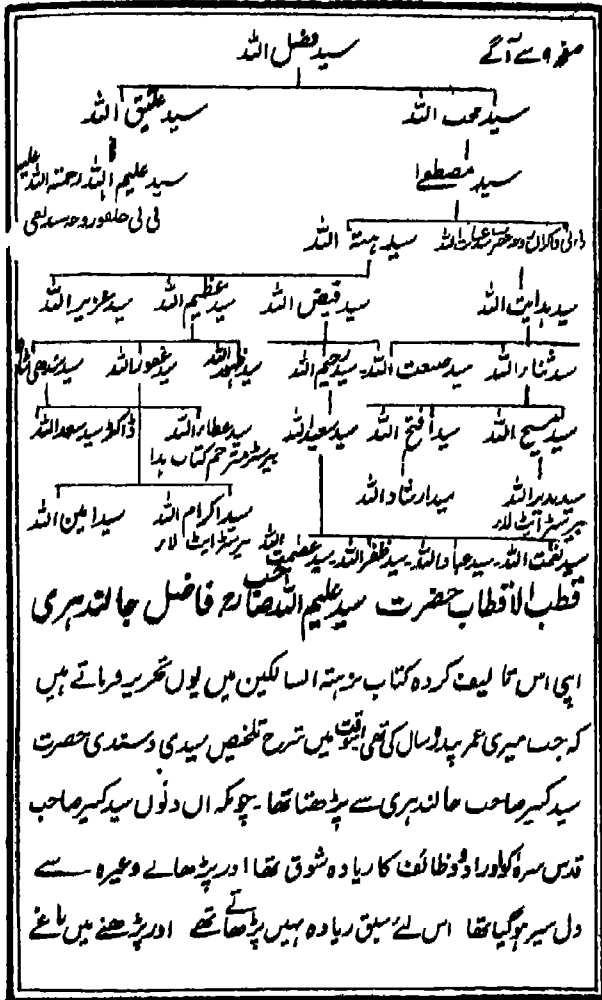 صفحہ ۹ سے آگے
سید فضل اللہ
سید محب اللہ سید عتیق اللہ
سید مصطفےا سید علیم اللہ رحمتہ اللہ علیہ
سید ہبتہ اللہ
سید ہدایت اللہ سید فیض اللہ سید عظیم اللہ سید عزیر اللہ
سید ثناء اللہ سید صبغت اللہ۔ سید رحیم اللہ سید ظہور اللہ سید غفور اللہ
سید مسیح اللہ سید افتح اللہ سید سعید اللہ سید عطاء اللہ ڈاکٹر سید سعد اللہ
بیرسٹر مترجم کتاب ہذا
سید بدیر اللہ سید ارشاد اللہ سید اکرام اللہ سید امین اللہ
بیرسٹر ایٹ لاء بیرسٹر ایٹ لاء
سید نعمت اللہ۔ سید عباد اللہ۔ سید ظفر اللہ۔ سید عصمت اللہ
قطب الاقطاب حضرت سید علیم اللہ صاحب رح فاضل جالندہری
اپنی اس تالیف کردہ کتاب نزہتہ السالکین میں یوں تحریر فرماتے ہیں
کہ جب میری عمر پندرہ سال کی تھی اسوقت میں شرح تلخیص سیدی و سندی حضرت
سید کبیر صاحب جالندہری سے پڑھتا تھا۔ چونکہ ان دنوں سید کبیر صاحب
قدس سرہ کو اوراد و وظائف کا زیادہ شوق تھا اور پڑھانے وغیرہ سے
دل سیر ہو گیا تھا اس لئے سبق زیادہ نہیں پڑھاتے تھے اور پڑھنے میں ناغے